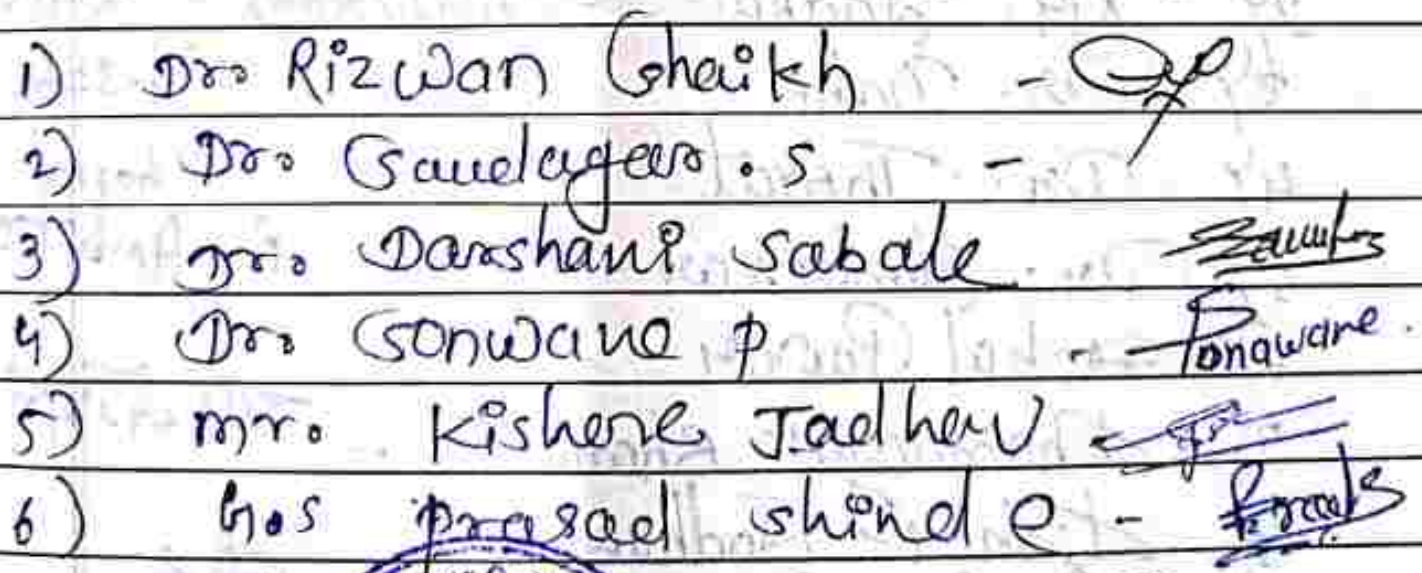 1) Dr. Rizwan Shaikh -
2) Dr. Saudagar . S -
3) Dr. Darshani Sabale
4) Dr. Sonwane P - Ponawane.
5) mr. Kishore Jadhav -
6) G.S prasad shinde -